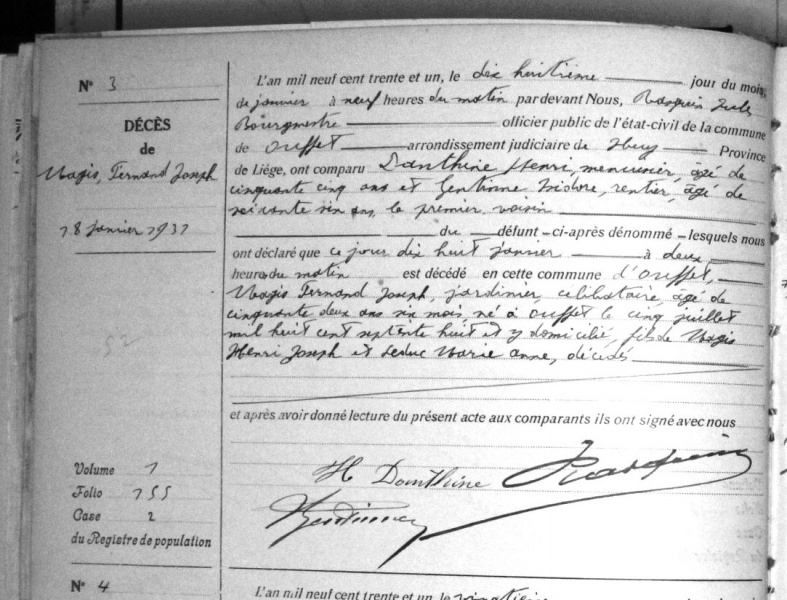 N° 3
DÉCÈS
de
Magis, Fernand Joseph
18 janvier 1931
52
Volume 1
Folio 155
Case 2
du Registre de population
L'an mil neuf cent trente et un, le dix huitième jour du mois,
de janvier à neuf heures du matin par devant Nous, Rasquin Jules
Bourgmestre officier public de l'état-civil de la commune
de Ouffet arrondissement judiciaire de Huy Province
de Liége, ont comparu Danthine Henri, menuisier, âgé de
cinquante cinq ans et Gentinne Isidore, rentier, âgé de
soixante six ans, le premier voisin
du défunt - ci-après dénommé - lesquels nous
ont déclaré que ce jour dix huit janvier à deux
heures du matin est décédé en cette commune d'Ouffet,
Magis Fernand Joseph, jardinier, célibataire, âgé de
cinquante deux ans six mois, né à Ouffet le cinq juillet
mil huit cent septante huit et y domicilié, fils de Magis
Henri Joseph et Leduc Marie Anne, décédés
et après avoir donné lecture du présent acte aux comparants ils ont signé avec nous
H Danthine Rasquin
Gentinne
N° 4
L'an mil neuf cent trente et un, le vingtième